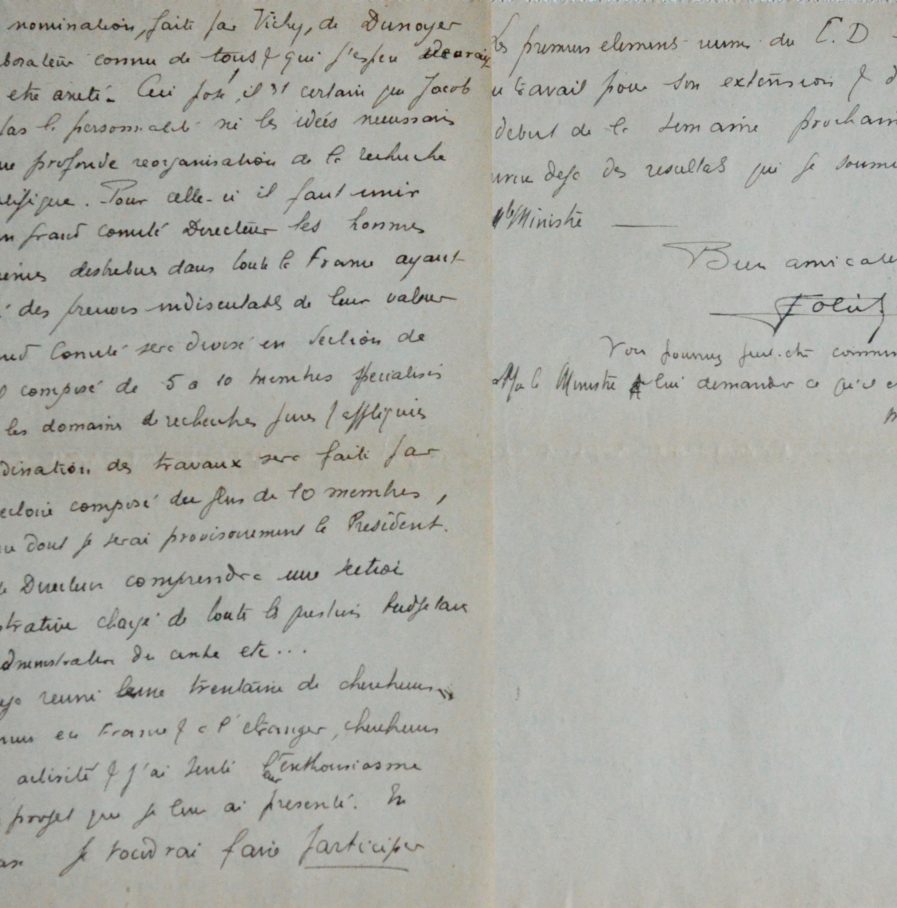 nomination, faite par Vichy, de Dunoyer
borateur connu de tous & qui j'espère
etre arreté. Ceci posé, il est certain que Jacob
pas la personnalité ni les idées necessaires
ne profonde reorganisation de la recherche
tifique. Pour celle-ci il faut unir
un grand comité Directeur les hommes
distribués dans toute la France ayant
des preuves indiscutables de leur valeur
Comité sera divisé en Section de
composé de 5 à 10 membres specialisés
les domaines de recherches pures & appliquées
dination des travaux sera faite par
ectoire composé de plus de 10 membres,
dont je serai provisoirement le President.
Directeur comprendra une section
strative chargé de toute les questions budgetaires
administration du centre etc...
reuni une trentaine de chercheurs
en France & à l'etranger, chercheurs
activité & j'ai senti l'enthousiasme
projet que je leur ai presenté. En
je voudrai faire participer
Les premiers elements reunis du C.D
travail pour son extension & d
debut de la semaine prochaine
deja des resultats que je soume
Ministre
Bien amicale
Joliot
Vous pourrez peut-etre commu
le Ministre & lui demander ce qu'il e